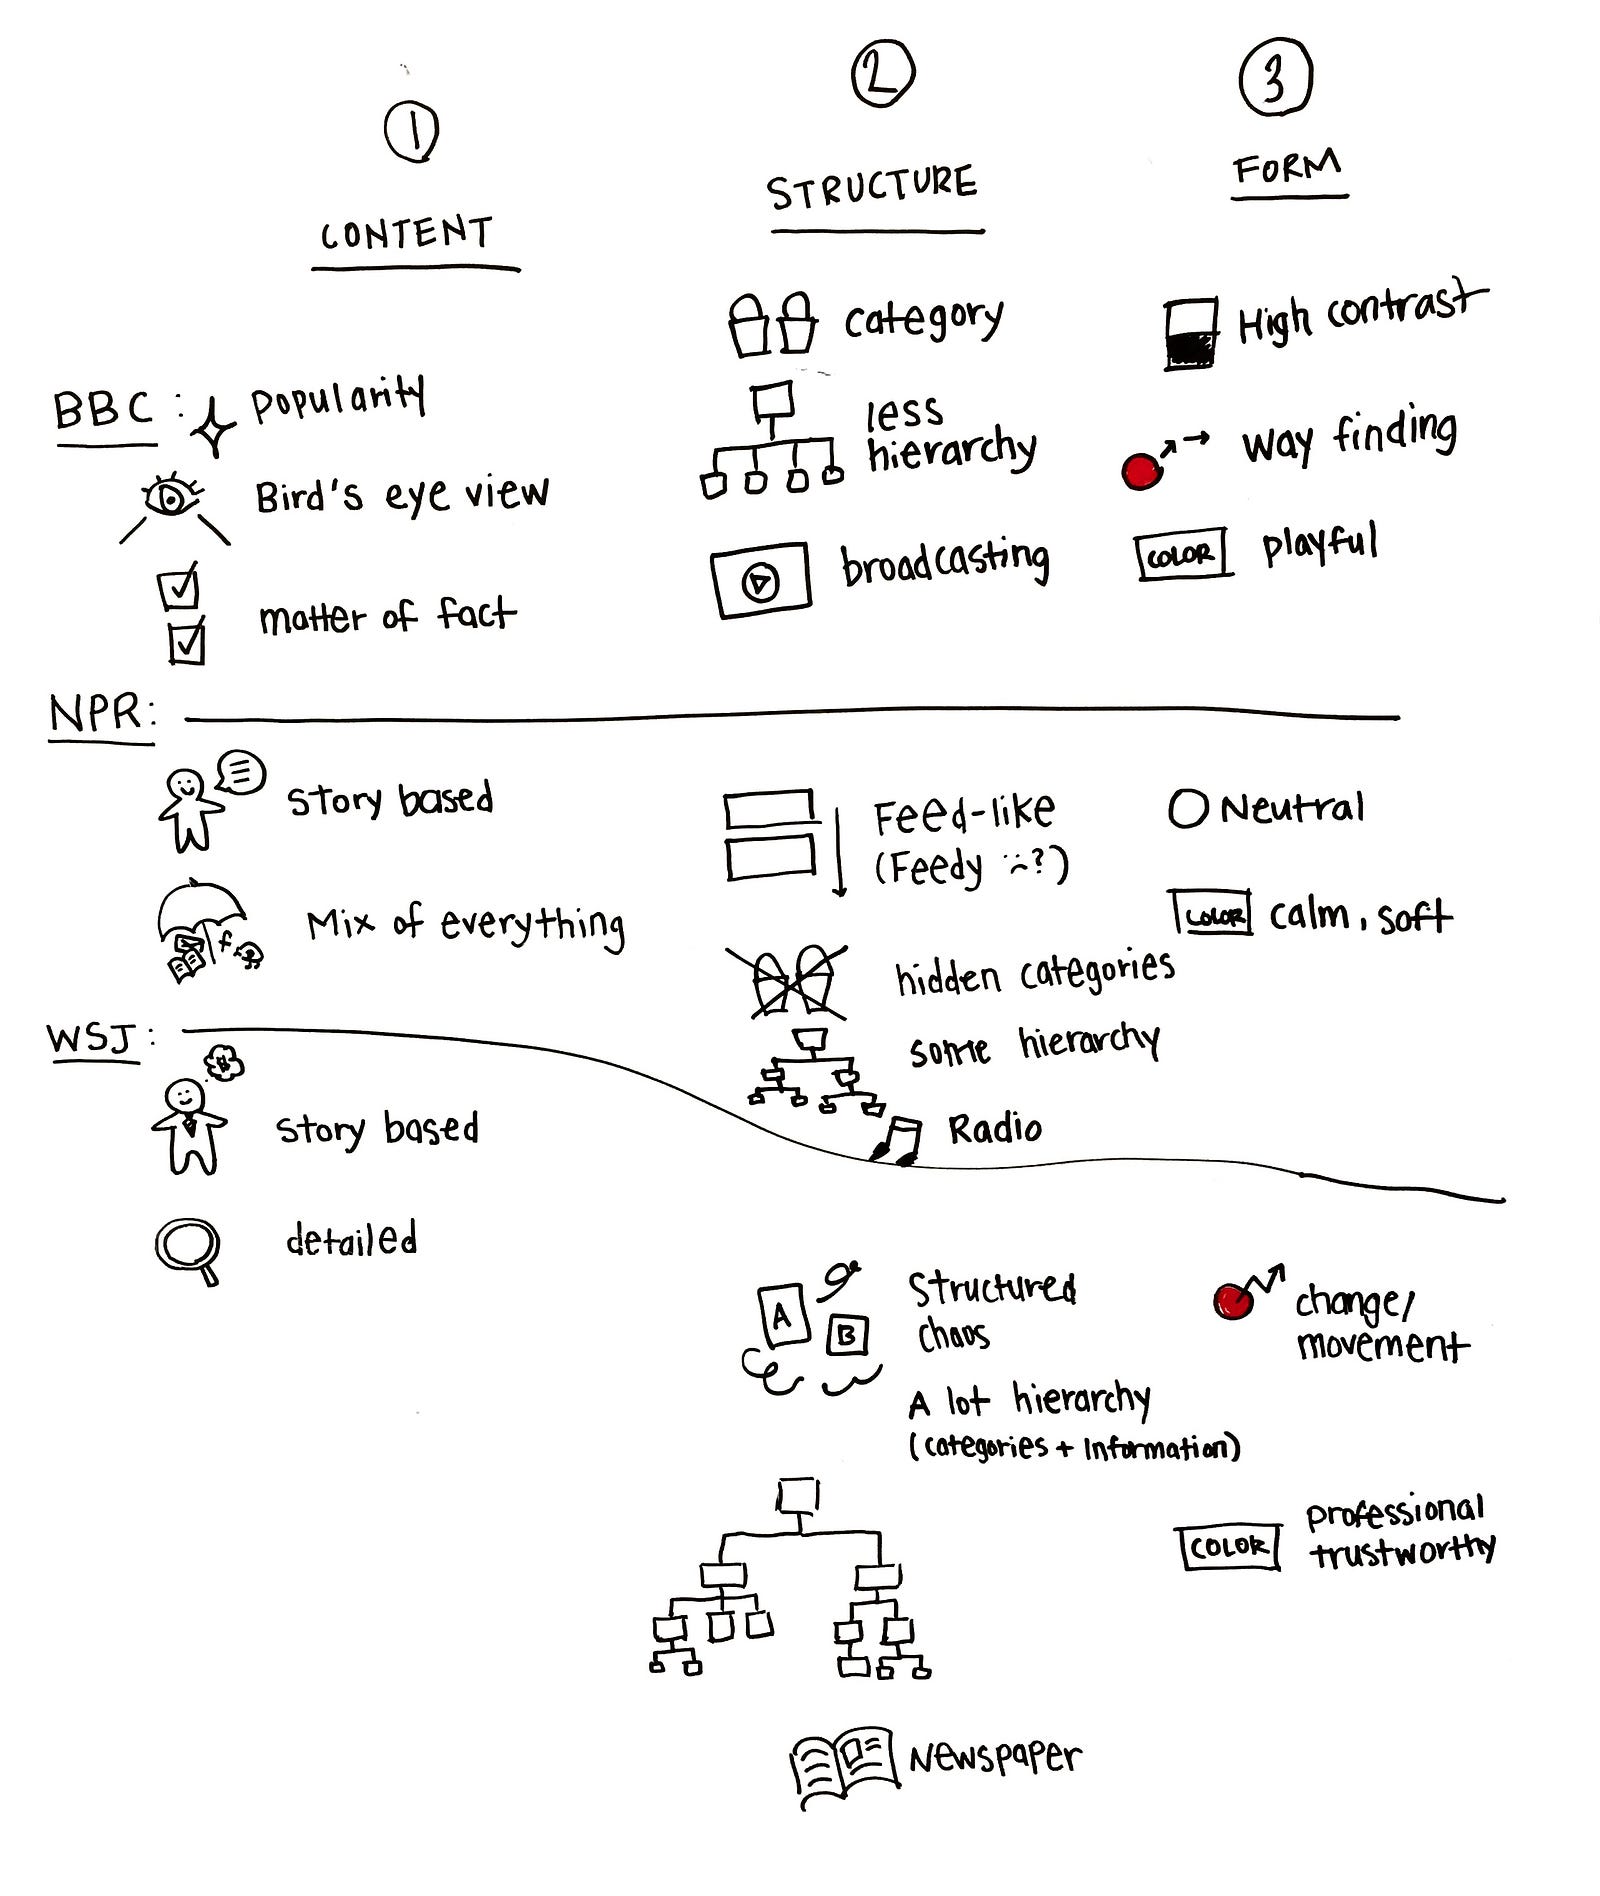 1
2
3
CONTENT
STRUCTURE
FORM
BBC :
Popularity
Bird's eye view
matter of fact
category
less
hierarchy
broadcasting
High contrast
way finding
COLOR
playful
NPR:
story based
f
Mix of everything
Feed-like
(Feedy :( ?)
hidden categories
some hierarchy
Radio
Neutral
COLOR
calm, soft
WSJ :
story based
detailed
A
B
Structured
chaos
A lot hierarchy
(categories + Information)
Newspaper
change/
movement
COLOR
professional
trustworthy